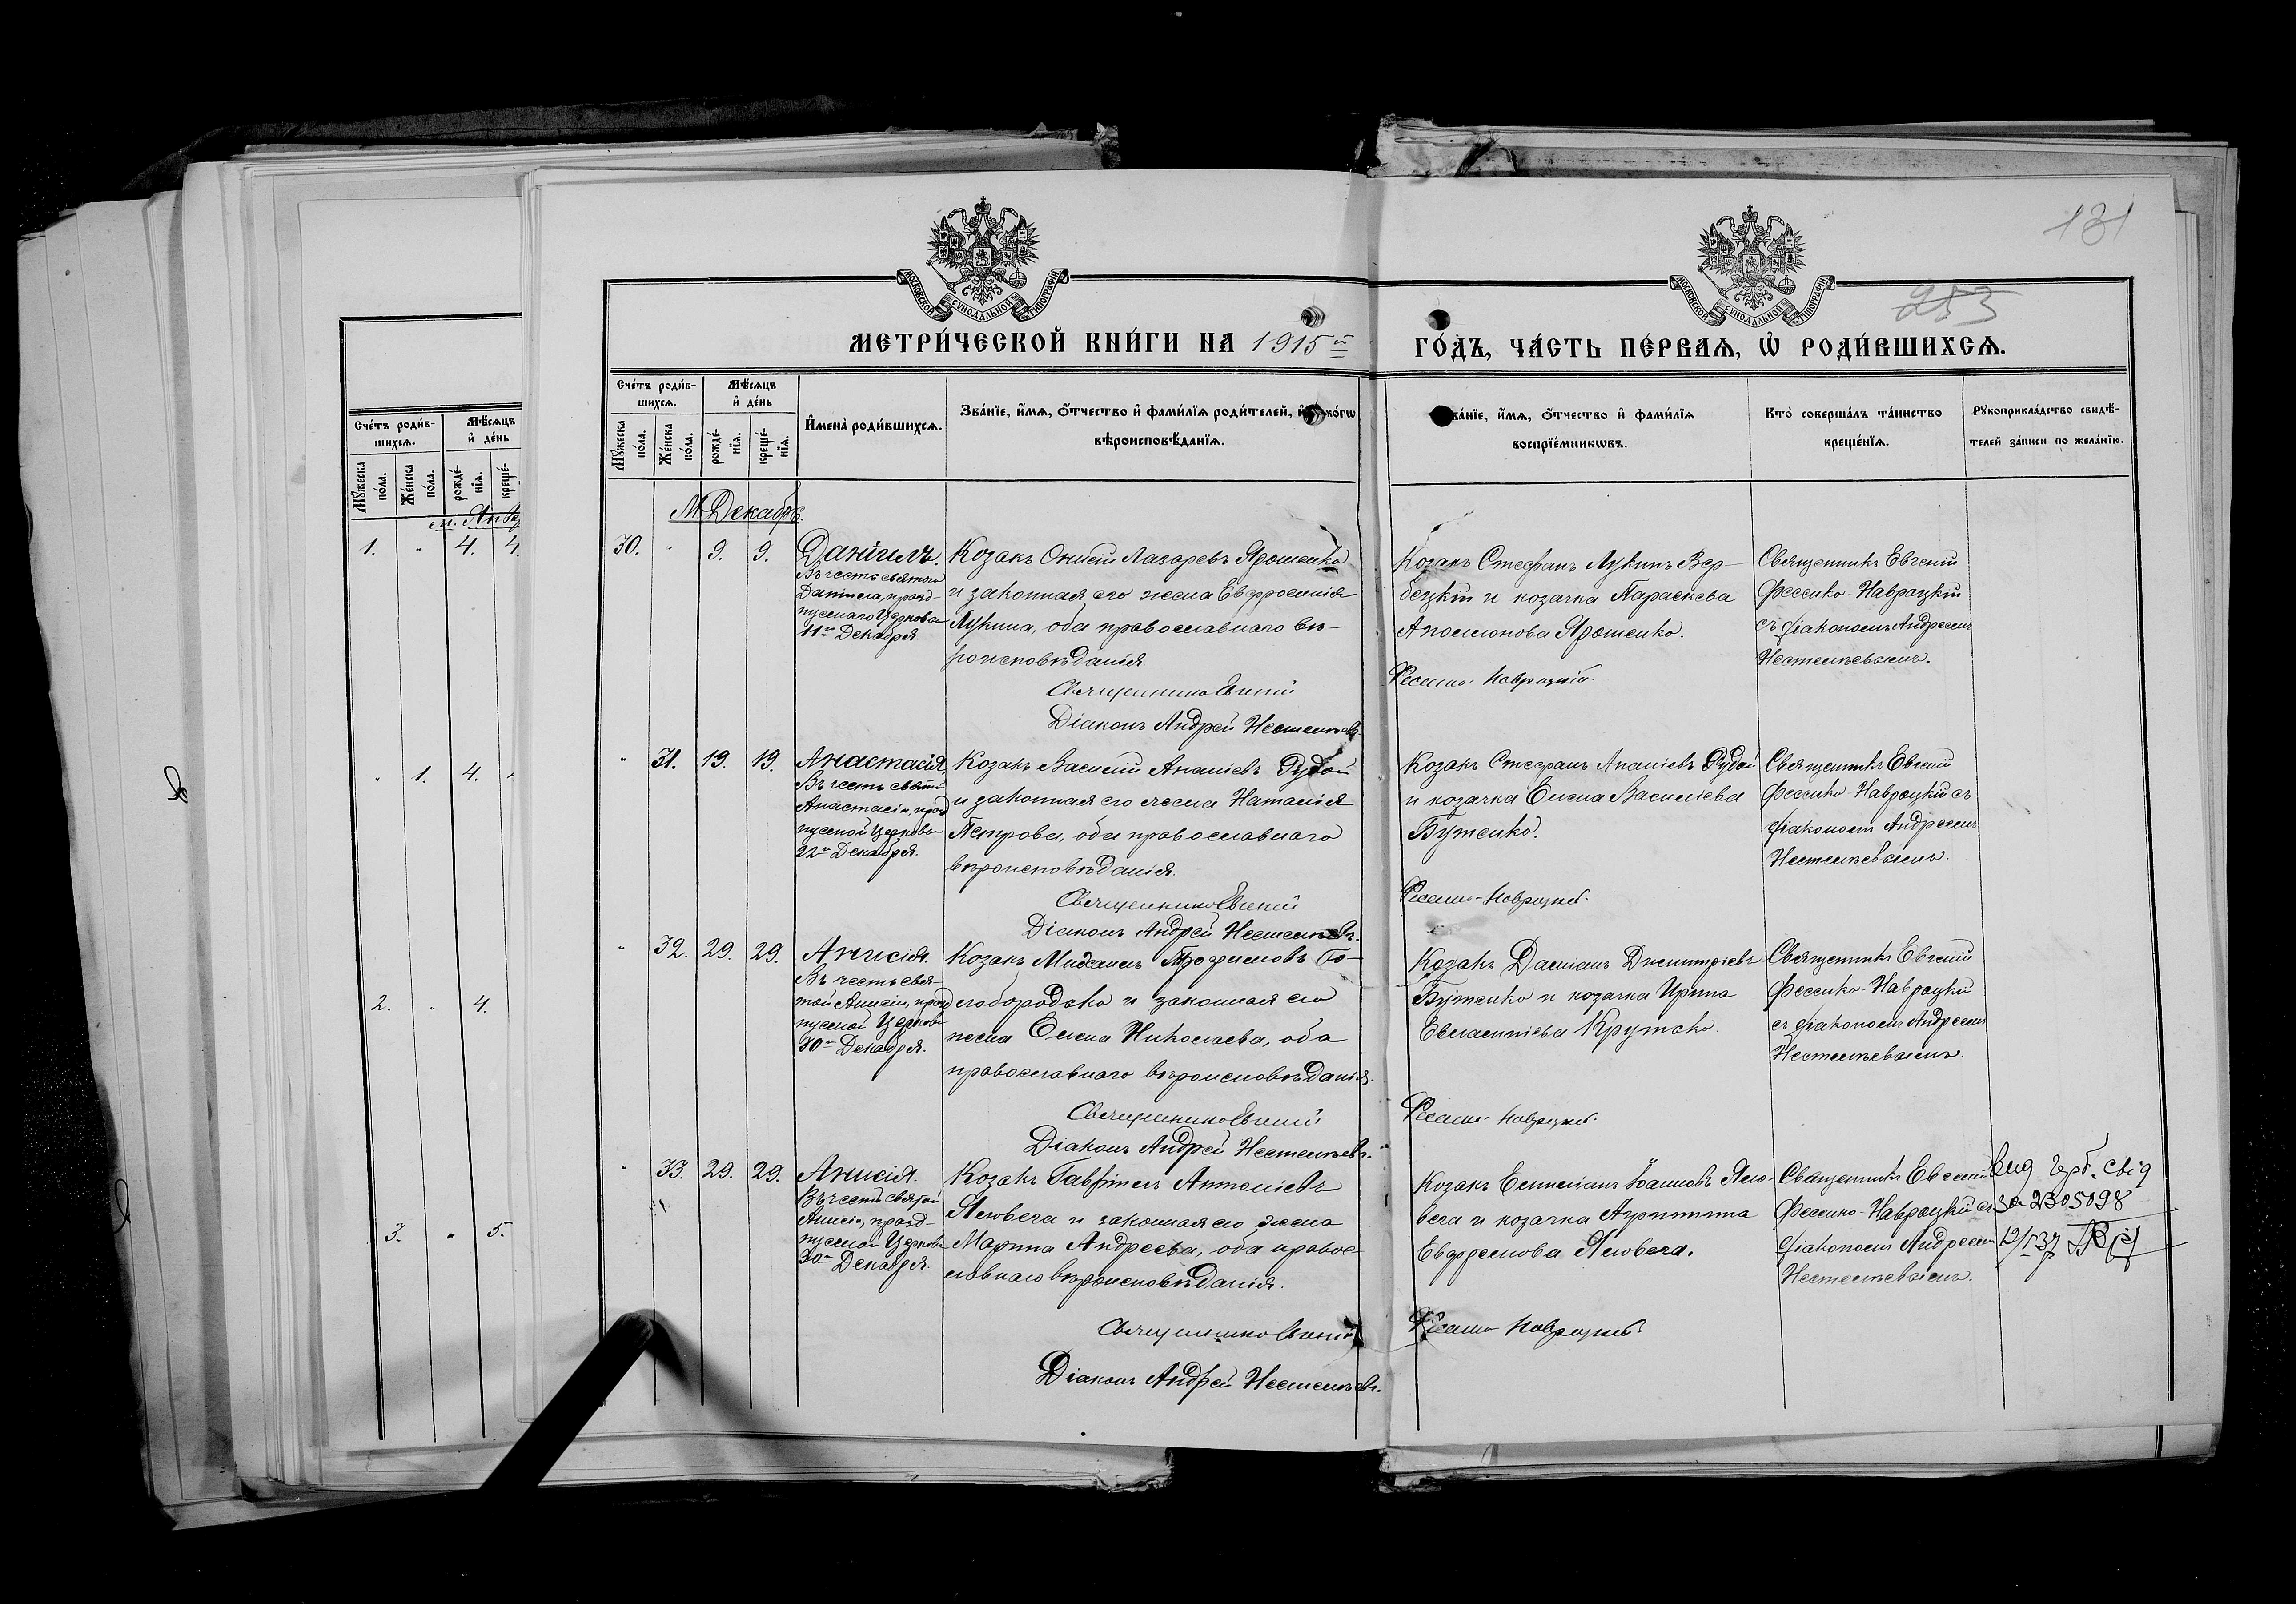 131
253
МОСКОВСКОЙ СѴНОДАЛЬНОЙ ТИПОГРАФІИ
МОСКОВСКОЙ СѴНОДАЛЬНОЙ ТИПОГРАФІИ
МЕТРИ́ЧЕСКОЙ КНИ́ГИ НА 1915й
ГО́ДЪ, ЧА́СТЬ ПЕ́РВАѦ, Ѡ РОДИ́ВШИХСѦ.
Сче́тъ роди́в-
шихсѧ.
Мѣ́сѧцъ
и де́нь
Мꙋ́жеска
по́ла.
Же́нска
по́ла.
рожде́-
нїѧ.
креще́-
нїѧ.
Имена̀ роди́вшихсѧ.
Зва́нїе, и́мѧ, о́тчество и фами́лїѧ роди́телей, и како́гѡ
вѣроисповѣ́данїѧ.
Зва́нїе, и́мѧ, о́тчество и фами́лїѧ
воспрїе́мникѡвъ.
Кто̀ соверша́лъ та́инство
креще́нїѧ.
Рꙋкоприкла́дство свидѣ́-
телей за́писи по жела́нїю.
М. Декабрь.
30. " 9. 9.
Даніилъ.
Въ честь святого
Даниила, празд-
нуемаго Церковью
11го Декабря
Козакъ Онисій Лазаревъ Ярошенко
и законная его жена Евфросинія
Лукина, оба православнаго вѣ-
роисповѣданія
Священникъ Евгеній
Діаконъ Андрей
Козакъ Стефанъ Лукинъ Вер-
бецкій и козачка Параскева
Ярошенко.
Фесенко-Навроцкій.
Священникъ Евгеній
Фесенко-Навроцкій
съ діакономъ Андреемъ
" 31. 19. 19.
Анастасія
Въ честь святой
Анастасіи, празд
нуемой Церковью
22го Декабря.
Козакъ Василій Ананіевъ Рудой
и законная его жена Наталія
Петрова, оба православнаго
вѣроисповѣданія.
Священникъ Евгеній
Діаконъ Андрей
Козакъ Стефанъ Ананіевъ Рудой
и козачка Елена Василіева
Бутенко.
Фесенко-Навроцкій.
Священникъ Евгеній
Фесенко-Навроцкій съ
діакономъ Андреемъ
" 32. 29. 29.
Анисія.
Въ честь свя-
той Анисіи, празд
нуемой Церковью
30го Декабря.
Козакъ Михаилъ Трофимовъ Го-
лобородько и законная его
жена Елена Николаева, оба
православнаго вѣроисповѣданія.
Священникъ Евгеній
Діаконъ Андрей
Козакъ Даміанъ Димитріевъ
Бутенко и козачка Ирина
Крутько
Фесенко-Навроцкій.
Священникъ Евгеній
Фесенко-Навроцкій
съ діакономъ Андреемъ
" 33. 29. 29.
Анисія.
Въ честь святой
Анисіи, празд-
нуемой Церковью
30го Декабря.
Козакъ Гавріилъ Антоніевъ
и законная его жена
Марина Андреева, оба право-
славнаго вѣроисповѣданія.
Священникъ Евгеній
Діаконъ Андрей
Козакъ Емиліанъ Іоанновъ
и козачка Агриппина
Фесенко-Навроцкій.
Священникъ Евгеній
Фесенко-Навроцкій съ
діакономъ Андреемъ
Вид. герб. свід
за 2305098
Сче́тъ роди́в-
шихсѧ.
Мѣ́сѧцъ
и де́нь
Мꙋ́жеска
по́ла.
Же́нска
по́ла.
рожде́-
нїѧ.
креще́-
1. " 4. 4.
" 1. 4.
2. " 4.
3. " 5.